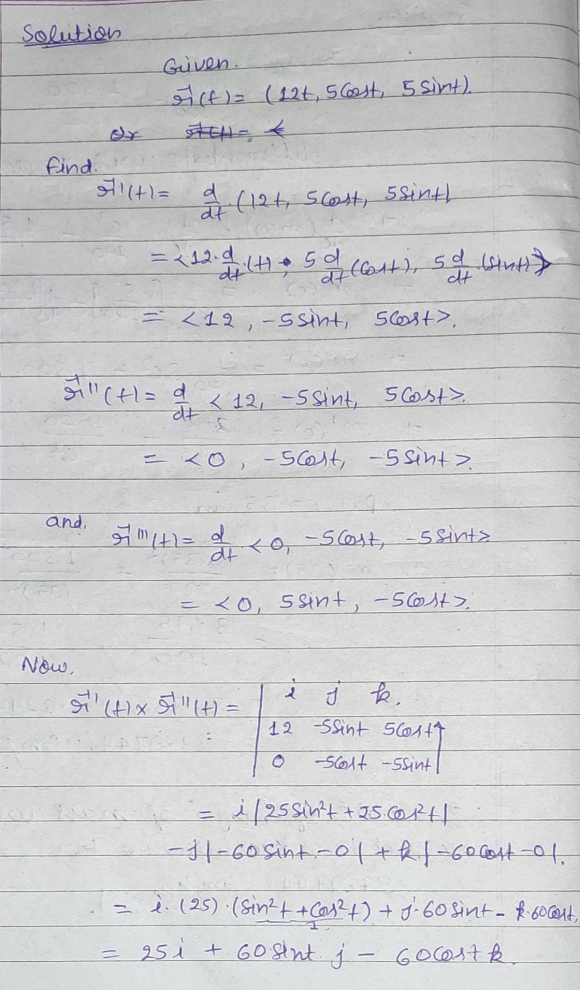 Solution
Given.
r⃗(t) = (12t, 5Cost, 5Sint).
Or
find.
r⃗'(t) = d/dt (12t, 5Cost, 5Sint)
= <12·d/dt·(t), 5 d/dt (Cost), 5 d/dt (Sint)>
= <12, -5Sint, 5Cost>.
r⃗''(t) = d/dt <12, -5Sint, 5Cost>.
= <0, -5Cost, -5Sint>.
and. r⃗'''(t) = d/dt <0, -5Cost, -5Sint>
= <0, 5Sint, -5Cost>.
Now,
r⃗'(t) × r⃗''(t) = | i j k.
12 -5Sint 5Cost
0 -5Cost -5Sint |
= i |25Sin²t + 25·Cos²t|
-j |-60Sint - 0| + k |-60Cost - 0|.
= i·(25)·(Sin²t + Cos²t) + j·60Sint - k·60Cost,
1
= 25i + 60Sint j - 60Cost k.